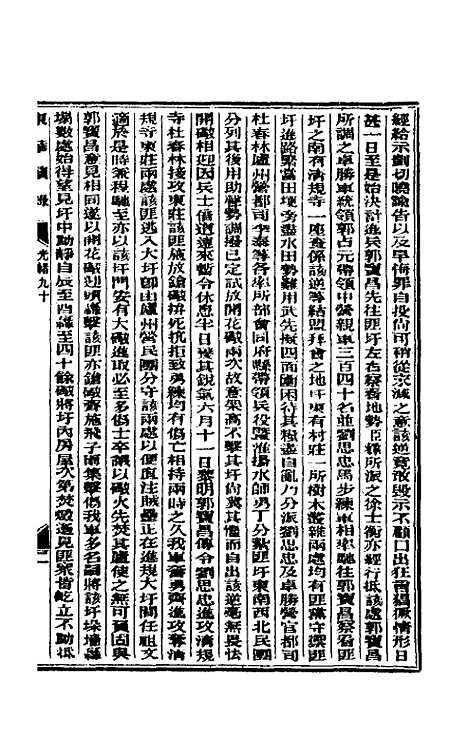 經給示劉切曉諭告以及早悔罪自投尚可稍從末減之意該逆竟敢毀示不顧口出狂言猖獗情形日
甚一日至是始決計進兵郭寶昌先往匪圩左右察看地勢臣緜所派之徐士衡亦經行抵該處郭寶昌
所調之卓勝軍統領郭占元帶領中營親軍三百四十名並劉思忠馬步練軍相率馳往郭寶昌察看匪
圩之南有清規寺一座查係該逆等結盟拜會之地圩東有村莊一所樹木叢雜兩處均有匪黨守禦匪
圩進路緊當田埂旁盡水田勢難用武先擬四面圍困待其糧盡自亂乃分派劉思忠及卓勝營官都司
杜春林廬州營都司李泰等各率所部會同府縣帶領兵役暨淮揚水師勇丁分紮匪圩東南西北民團
分列其後用助聲勢調撥已定試放開花礮兩次故意架高不擊其圩尚冀其懼而自出該逆毫無畏怯
開礮相迎因兵士僨道遠來暫令休息半日養其銳氣六月十一日黎明郭寶昌傳令劉思忠進攻清規
寺杜春林接攻東莊該匪施放鎗礮拚死抗拒致勇練均有傷亡相持兩時之久我軍奮勇齊進攻奪清
規寺東莊兩處該匪逃入大圩卽由廬州營民團分守該兩處以便直注賊壘正在進規大圩間任祖文
適於是時乘程馳至亦以該圩門安有大礮進取必至多傷士卒議以礮火先焚其廬使之無可資固與
郭寶昌意見相同遂以開花礮迎頭轟擊該匪亦鎗礮齊施飛子雨集擊傷我軍多名嗣將該圩垛墻轟
塌數處始得望見圩中動靜自辰至酉轟至四十餘礮將圩內房屋次第焚燬遙見匪衆皆屹立不動抵
東華續錄
光緒九十